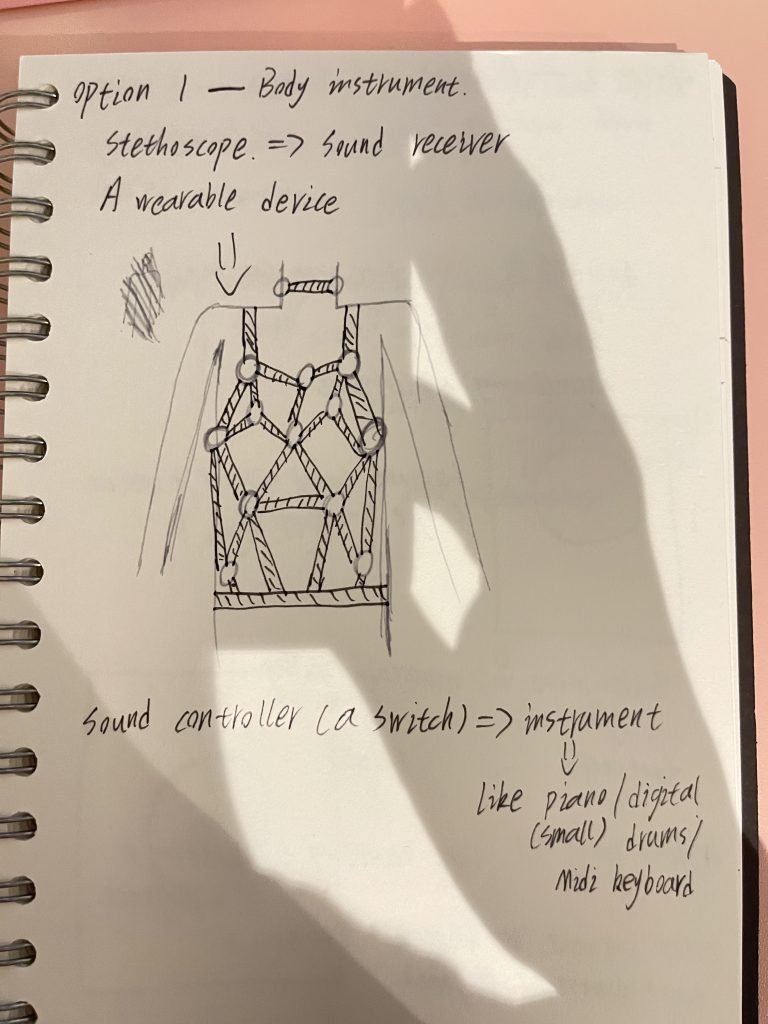 Option 1 — Body instrument.
Stethoscope. => Sound receiver
A wearable device
Sound controller (a switch) => instrument
Like piano/digital
(small) drums/
Midi keyboard